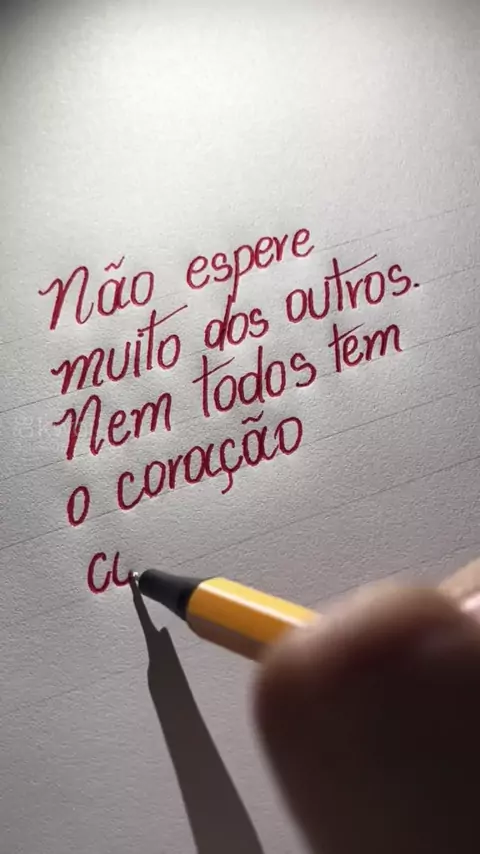 Não espere
muito dos outros.
Nem todos tem
o coração